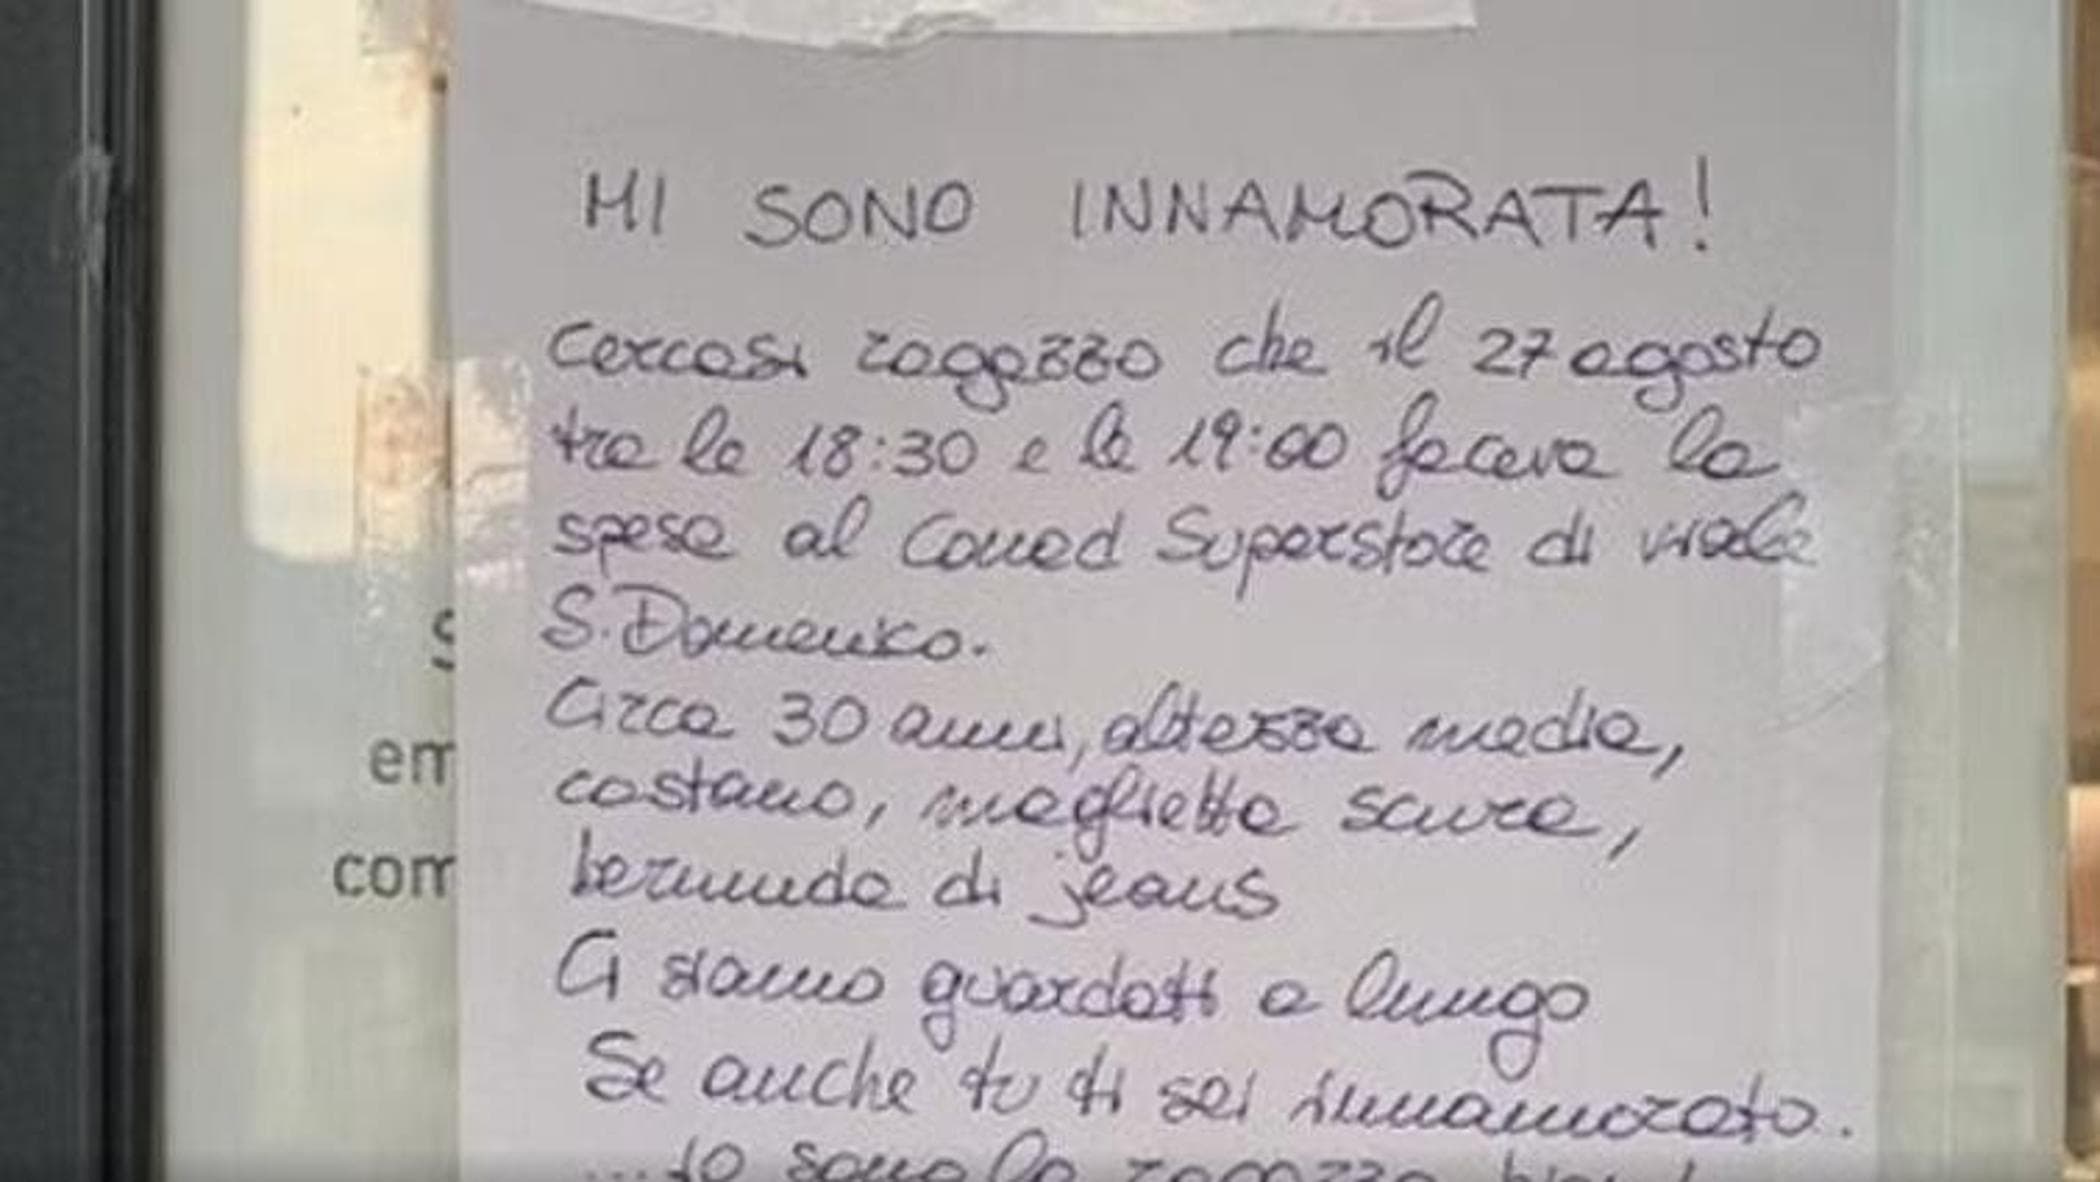 MI SONO INNAMORATA!
Cercasi ragazzo che il 27 agosto
tra le 18:30 e le 19:00 faceva la
spesa al Conad Superstore di viale
S. Domenico.
Circa 30 anni, altezza media,
castano, maglietta scura,
bermuda di jeans
Ci siamo guardati a lungo
Se anche tu ti sei innamorato.
...io sono la ragazza
S
em
com